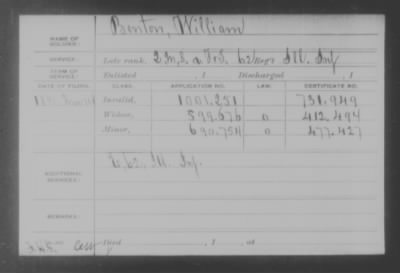 Benton, William
NAME OF SOLDIER:
SERVICE: Late rank, 2 M.S. & F&S, 62 Reg't Ill. Inf
TERM OF SERVICE: Enlisted , 1 Discharged , 1
DATE OF FILING. CLASS. APPLICATION NO. LAW. CERTIFICATE NO.
Invalid, 1001.251 731.949
Widow, 599.676 o 412.494
Minor, 690.754 o 477.427
ADDITIONAL SERVICES: E, 62, Ill. Inf.
REMARKS:
Died , 1 , at